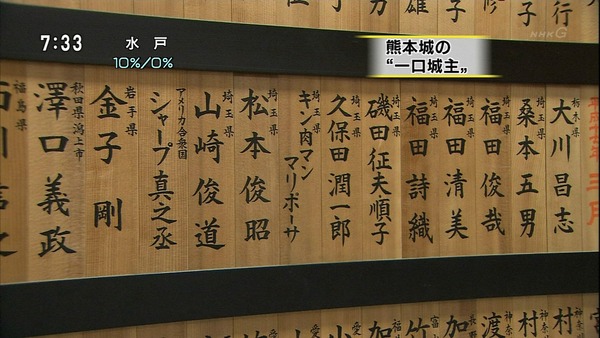 7:33
水戸
10%/0%
熊本城の
“一口城主”
NHK G
行
子
子
雄
三月
栃木県
大川昌志
埼玉県
桑本五男
埼玉県
福田俊哉
埼玉県
福田清美
埼玉県
福田詩織
埼玉県
磯田征夫順子
埼玉県
久保田潤一郎
埼玉県
キン肉マン
マリポーサ
埼玉県
松本俊昭
埼玉県
山崎俊道
アメリカ合衆国
シャープ真之丞
岩手県
金子剛
秋田県潟上市
澤口義政
福島県
神奈
村
神奈
村
神奈
渡
加
竹
加
愛
愛